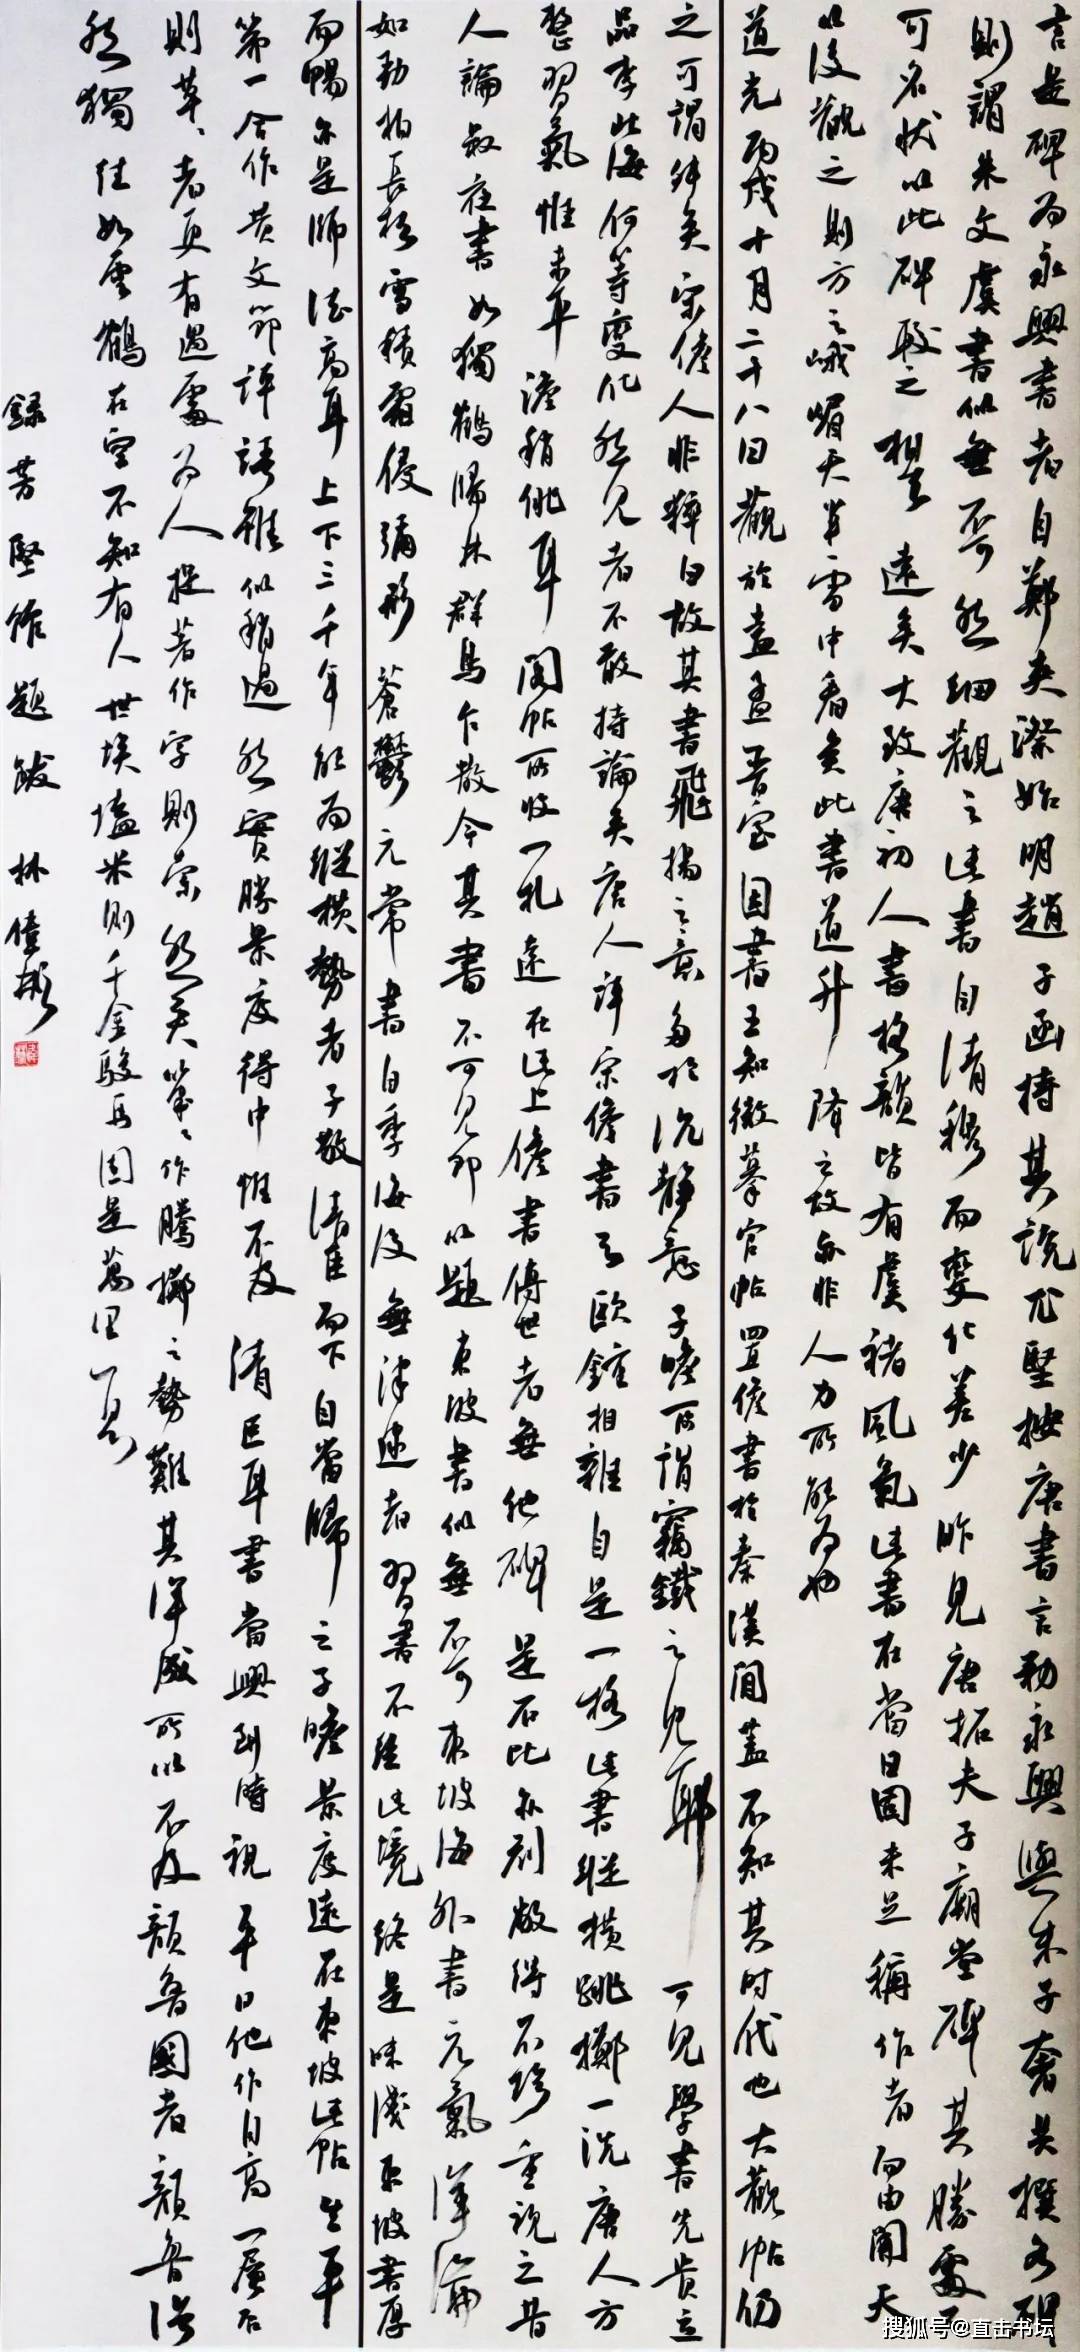 言是碑为永興書者自鄭夾漈始明趙子函持其說尤堅按唐書言勒永興與朱子奢共撰各碑
則謂朱文虞書似無不可然細觀之此書自清穆而變化差少昨見唐拓夫子廟堂碑其勝處不
可名狀以此碑較之相去遠矣大致唐初人書格韻皆有虞褚風氣此書在當日固未足稱作者而由開天
以後觀之則方之峨嵋天半雪中看矣此書道升降之故亦非人力所能为也
道光丙戌十月二十八日觀於孟晉室因書王知微摹官帖置儋書於秦漢間蓋不知其时代也大觀帖仍
之可謂舛矣宋儋人非粹白故其書飛揚之意多於沉靜意子瞻所謂竊鐵之見耶可見學書先貴立
品李北海何等变化然见者不敢持論矣唐人評宗儋書云欧鍾相雜自是一格此書縱橫跳擲一洗唐人方
整習氣惟未平澹稍佻耳閣帖所收一札遠在此上儋書傳世者無他碑是石比亦刓敝得不珍重視之昔
人論叔夜書如獨鶴歸林群烏乍散今其書不可见即以題東坡書似無不可東坡海外書元氣渾淪
如勁柏長松雪積霜侵彌形蒼鬱元常書自季海後無津逮者習書不歷此境終是味淺東坡書厚
而暢亦是師浩高耳上下三千年能为縱横勢者子敬清臣而下自當歸之子瞻景度遠在東坡此帖生平
第一合作黄文節評語雖似稍過然實勝景度得中惟不及清臣耳書當興到時視平日他作自高一層右
則草草者更有過處为人捉著作字則索然矣筆筆作騰擲之勢難其渾成所以不及顔魯國者顔魯浩
然獨往如雲鶴在空不知有人世埃壒米則千金駿馬固是萬里一息
錄芳堅館題跋 林
搜狐号@直击书坛